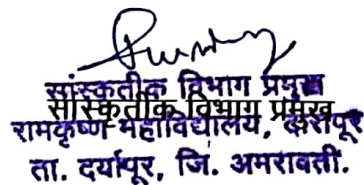 सांस्कृतीक विभाग प्रमुख
सांस्कृतीक विभाग प्रमुख
रामकृष्ण महाविद्यालय, दारापूर
ता. दर्यापूर, जि. अमरावती.